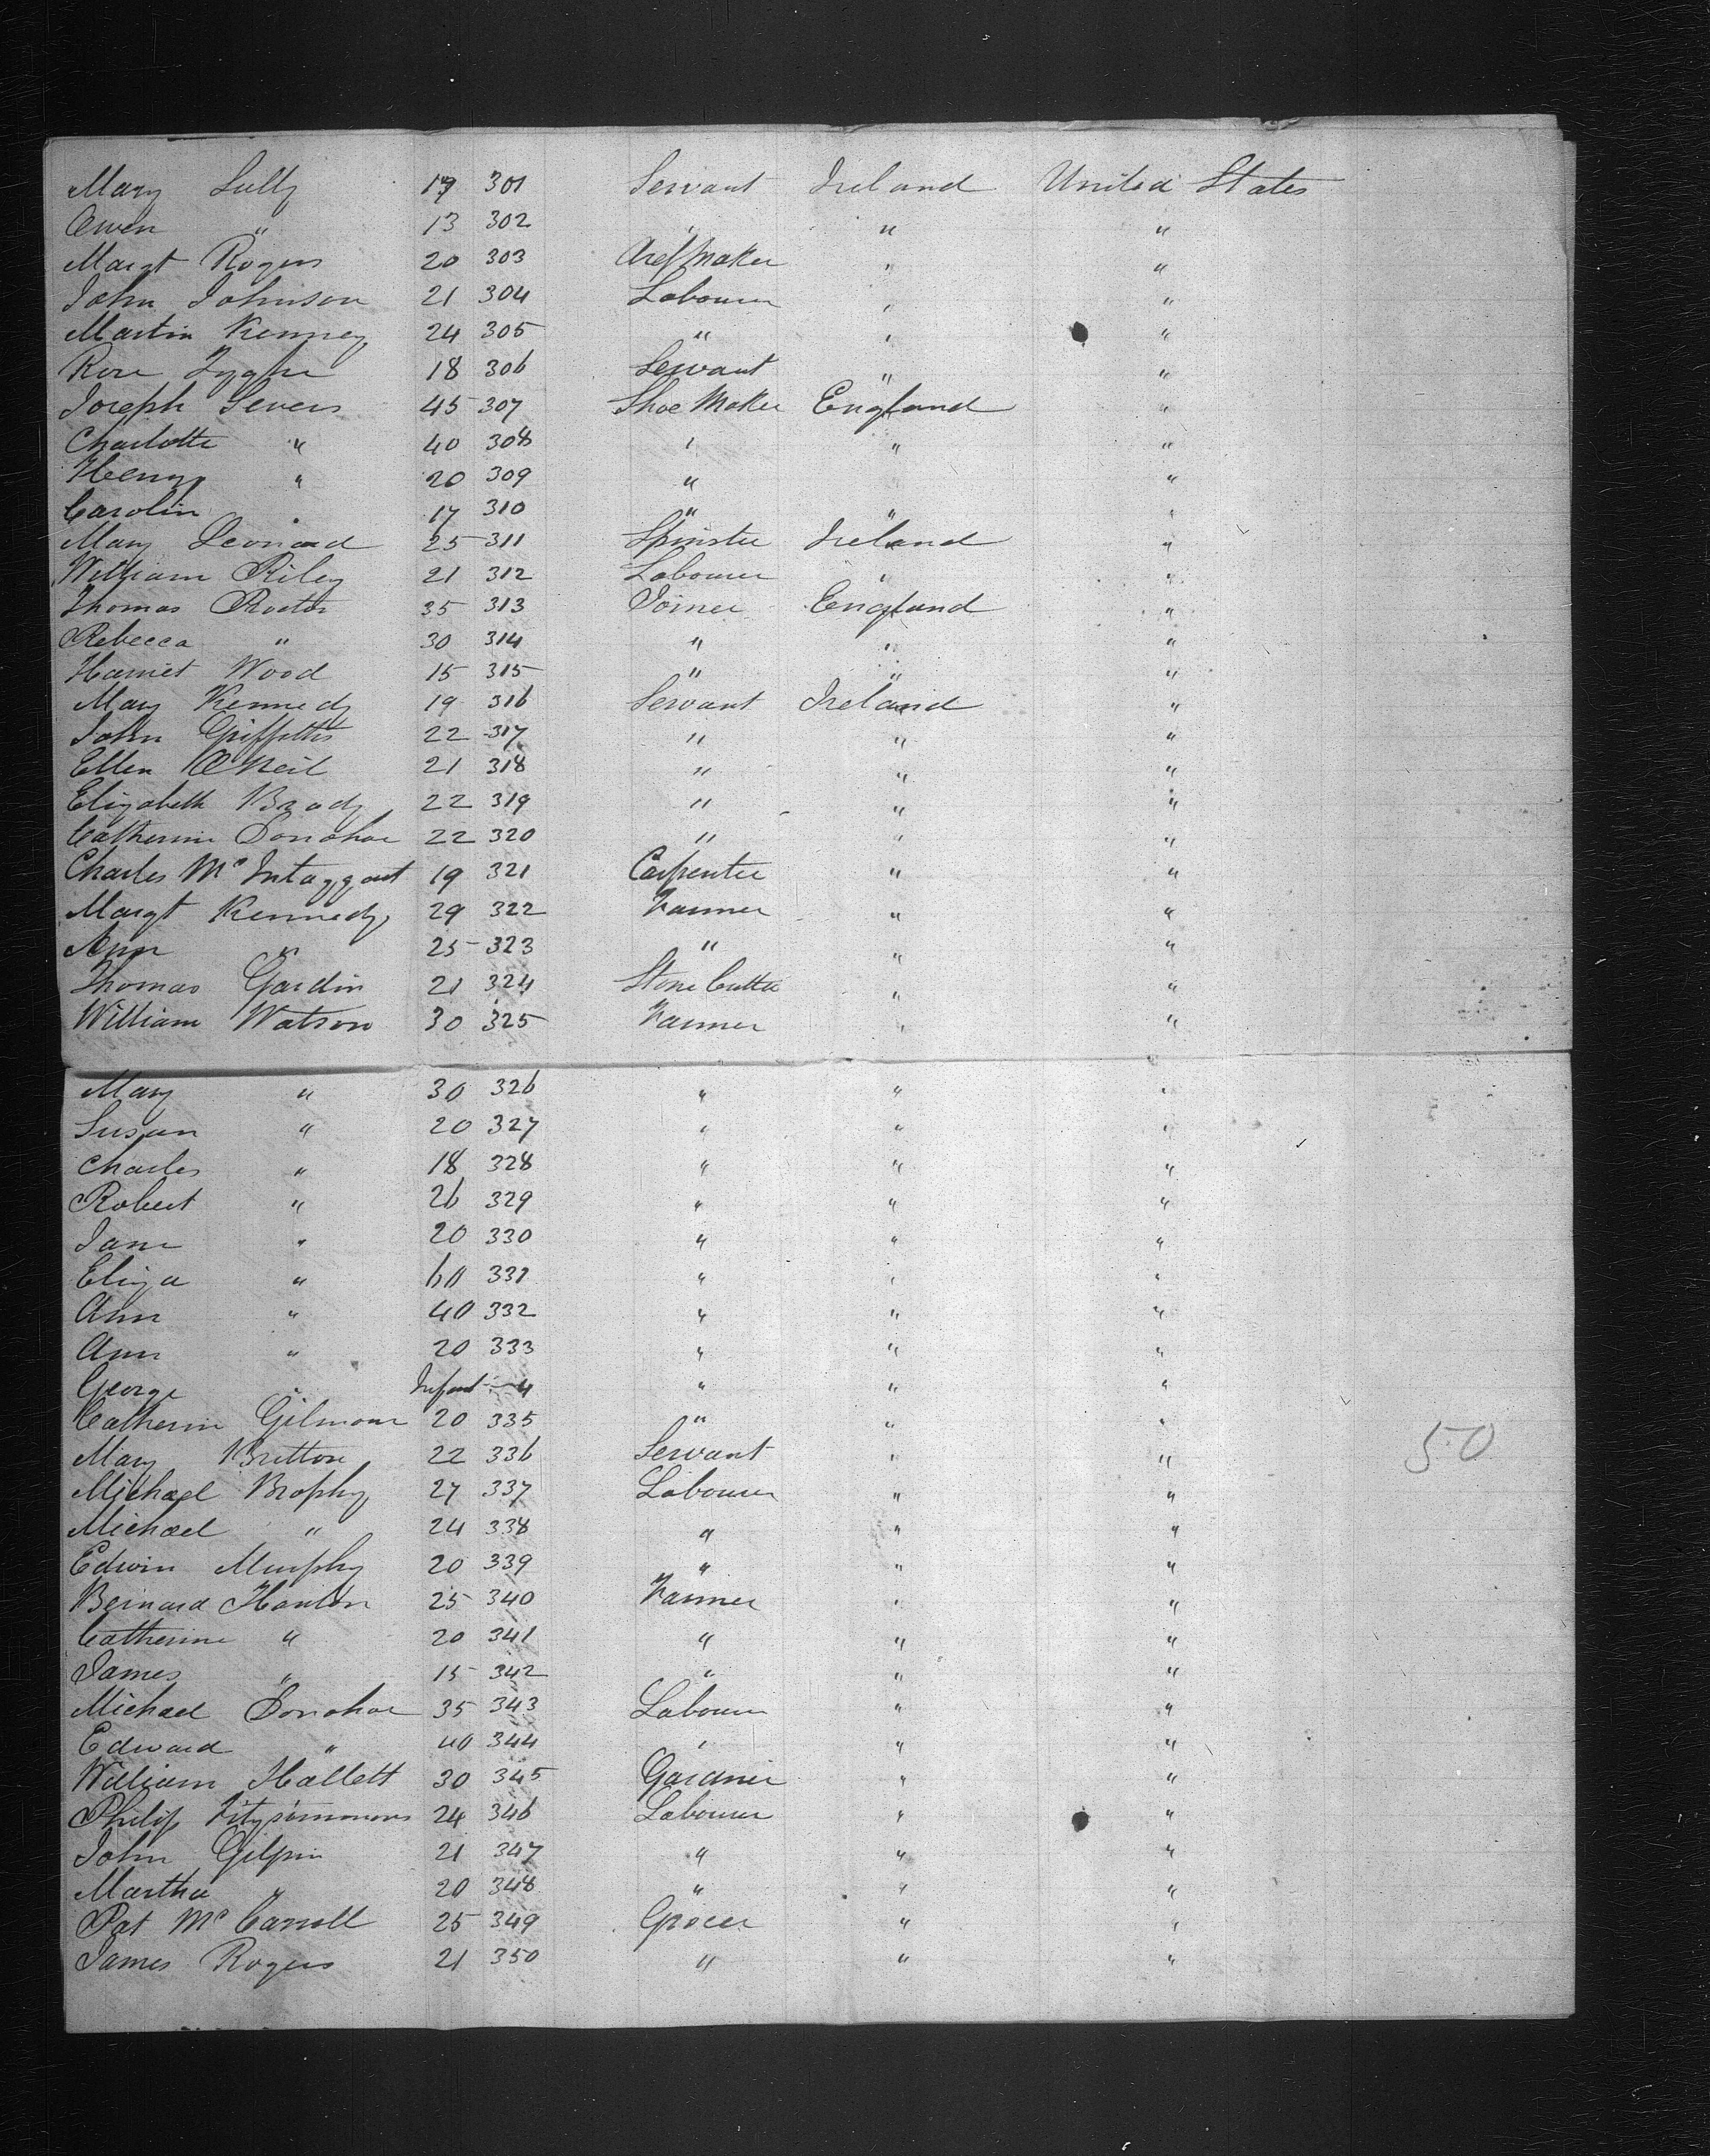 Mary Lully 19 301 Servant Ireland United States
Owen " 13 302 " " "
Margt Rogers 20 303 Maker " "
John Johnson 21 304 Labourer " "
Martin Kenney 24 305 " " "
Rose 18 306 Servant " "
Joseph Severs 45 307 Shoe Maker England "
Charlotte " 40 308 " " "
Henry " 20 309 " "
Carolin " 17 310 " " "
Mary Leonard 25 311 Spinster Ireland "
William Riley 21 312 Labourer " "
Thomas 35 313 Joiner England "
Rebecca " 30 314 " " "
Harriet Wood 15 315 " " "
Mary Kennedy 19 316 Servant Ireland "
John Griffiths 22 317 " " "
Ellen ONeil 21 318 " " "
Elizabeth Brady 22 319 " " "
Catherine Donohoe 22 320 " " "
Charles Mc Intaggart 19 321 Carpenter " "
Margt Kennedy 29 322 Farmer " "
Ann " 25 323 " " "
Thomas Gardin 21 324 Stone Cutter " "
William Watson 30 325 Farmer " "
Mary " 30 326 " " "
Susan " 20 327 " " "
Charles " 18 328 " " "
Robert " 26 329 " " "
Jane " 20 330 " " "
Eliza " 60 331 " " "
Ann " 40 332 " " "
Ann " 20 333 " " "
George " Infant - 4 " " "
Catherin Gilmour 20 335 " " "
Mary Britton 22 336 Servant " " 50
Michael Brophy 27 337 Labourer " "
Michael " 24 338 " " "
Edwin Murphy 20 339 " " "
Bernard Hanlon 25 340 Farmer " "
Catherine " 20 341 " " "
James " 15 342 " " "
Michael Donohoe 35 343 Labourer " "
Edward " 40 344 " " "
William Hallett 30 345 Gardner " "
Philip Fitzsimmons 24 346 Labourer " "
John Gilpin 21 347 " " "
Martha " 20 348 " " "
Pat Mc Carroll 25 349 Grocer " "
James Rogers 21 350 " " "